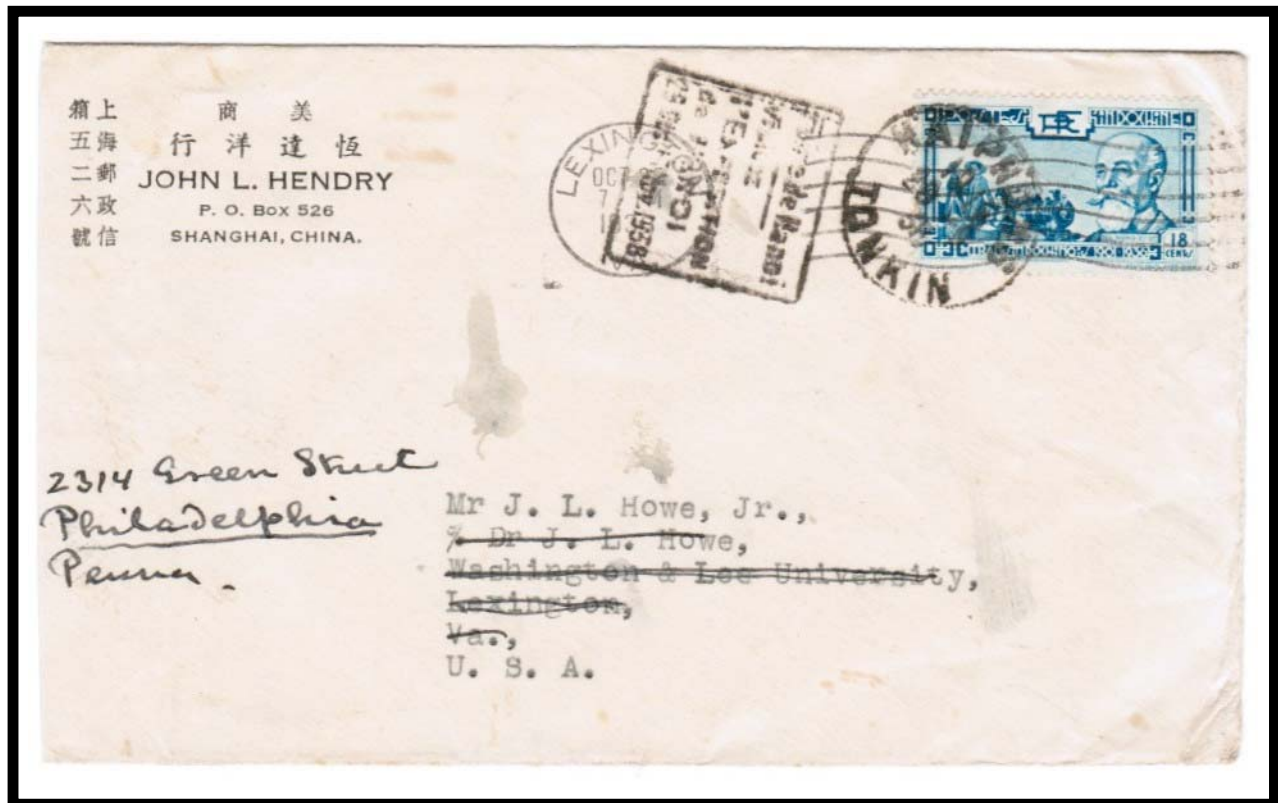 美商
恆達洋行
JOHN L. HENDRY
P. O. Box 526
SHANGHAI, CHINA.
上海郵政信
箱五二六號
LEXINGTON
OCT
7
de Hanoi
1938
HAIPHONG
TONKIN
POSTES INDOCHINE
RF
18
CENTS
2314 Green Street
Philadelphia
Penna.
Mr J. L. Howe, Jr.,
% Dr J. L. Howe,
Washington & Lee University,
Lexington,
Va.,
U. S. A.